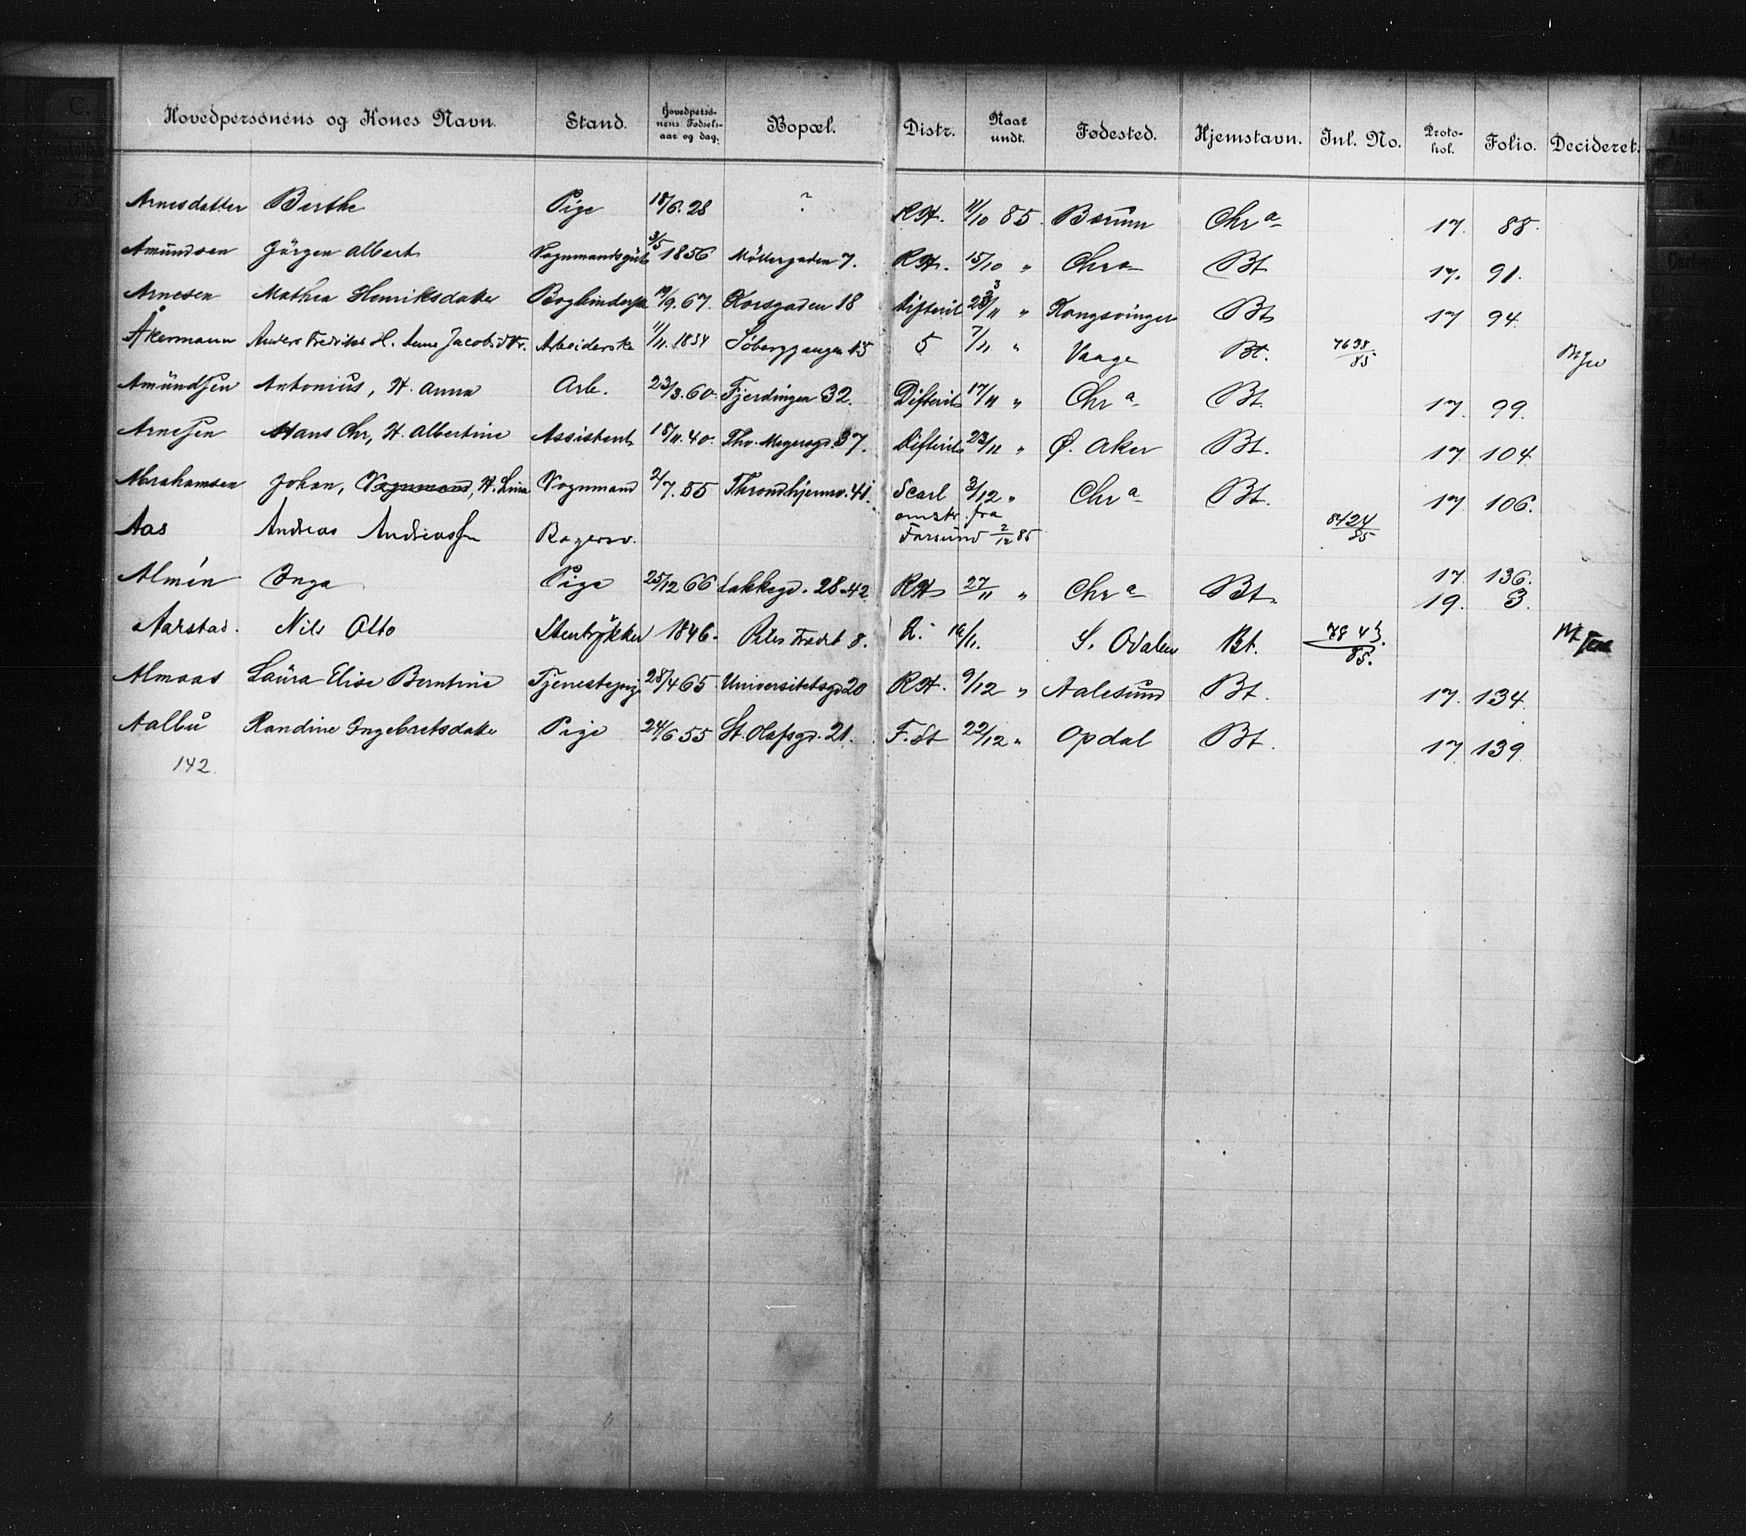 Hovedpersonens og Kones Navn. Stand. Hovedpersonens Fødselsaar og dag. Bopæl. Distr. Naar undt. Fødested. Hjemstavn. Inl. No. Protokol. Folio. Decideret.
Arnesdatter Berthe Pige 18/6. 28 ? RH. 11/10 85. Bærum Chr a 17. 88.
Amundsen Jørgen Albert 3/5 1856 Møllergaden 7. RH. 15/10 " Chra Bt 17. 91.
Arnesen Mathea Henriksdatter 19/9. 67. Korsgaden 18 Difterit " Kongsvinger Bt 17 94.
Åkermann Anders Fredrik H. Anne Jacobsdtr. Arbeiderske 11/11. 1834 Søberggangen 15 5 7/11 " Vaage Bt. 7698/85
Amündsen Antonius, H. Anna Arb. 23/3. 60. Fjerdingen 32. Difterit 17/11 " Chr a Bt. 17. 99.
Arnesen Hans Chr, H. Albertine Assistent 18/11. 40. Thv. Meyersgd. 37. Difterit 23/11 " Ø. Aker Bt. 17. 104.
Abrahamsen Johan, Vognmand, H. Lina Vognmand 2/7. 55 Throndhjemsv. 41. Scarl 3/12 " Chr a Bt. 17 106.
Aas Andreas Andreassen omstr. fra Farsund 2/12 85 8424/85
Almén Inga Pige 25/12 66 Lakkegd. 28-42. RH 27/11 " Chr a Bt. 17. 136.
19. 3.
Aarstad. Nils Otto Stentrykker 1846. 8. 16/11. S. Odalen Bt. 7843/85.
Almaas Laura Elise Berntine Tjenestepig 28/4 65 Universitetsgd 20 RH. 9/12 " Aalesund Bt. 17. 134.
Aalbu Randine Ingebretsdatter Pige 24/6 55 St. Olafsgd. 21. F. St 22/12 " Opdal Bt. 17. 139.
142.